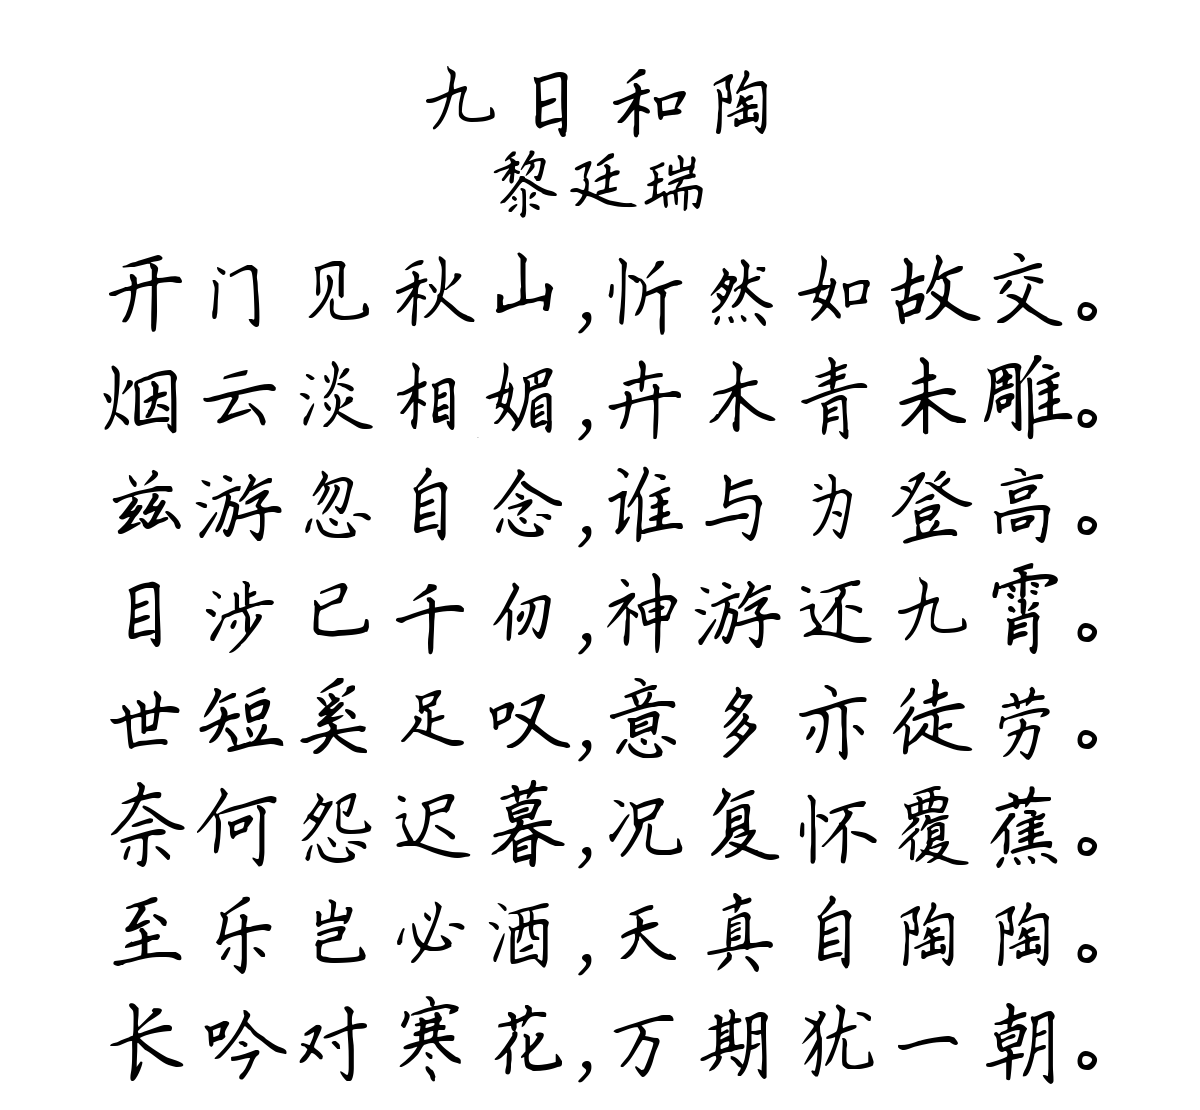 九日和陶
黎廷瑞
开门见秋山,忻然如故交。
烟云淡相媚,卉木青未雕。
兹游忽自念,谁与为登高。
目涉已千仞,神游还九霄。
世短奚足叹,意多亦徒劳。
奈何怨迟暮,况复怀覆蕉。
至乐岂必酒,天真自陶陶。
长吟对寒花,万期犹一朝。